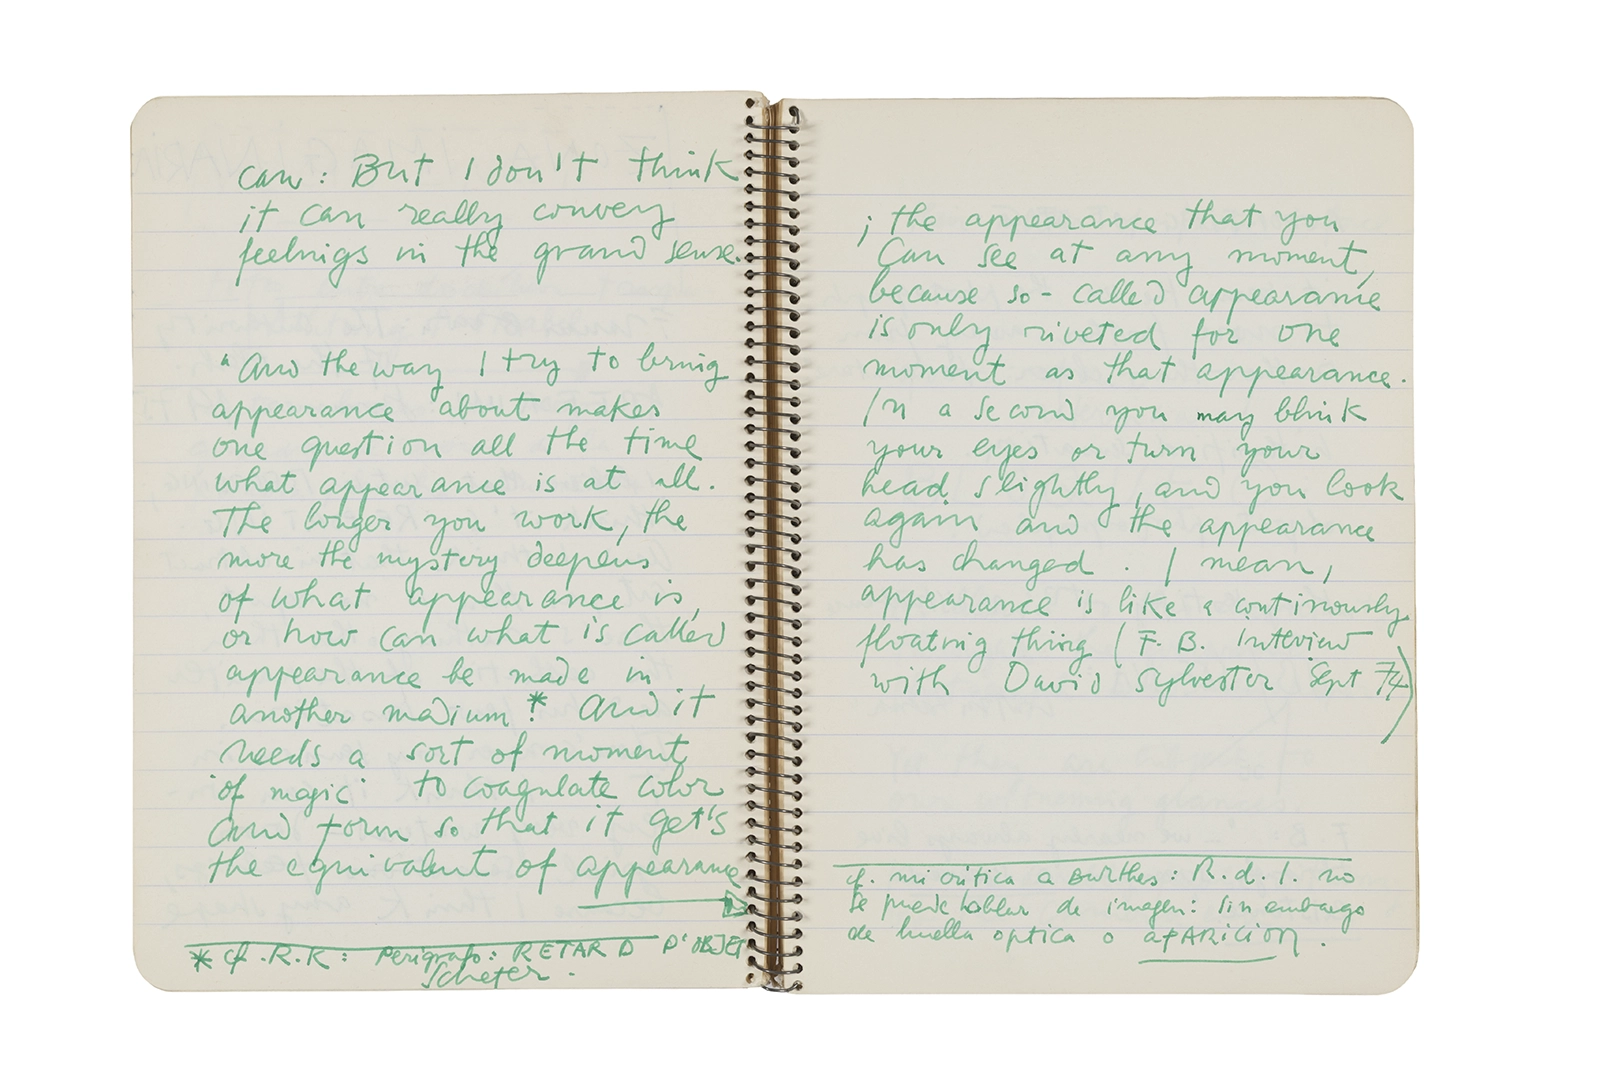 can: But I don't think
it can really convey
feelings in the grand sense.
"And the way I try to bring
appearance about makes
one question all the time
what appearance is at all.
The longer you work, the
more the mystery deepens
of what appearance is,
or how can what is called
appearance be made in
another medium * And it
needs a sort of moment
of magic to coagulate color
and form so that it get's
the equivalent of appearance
* cf. R.K: Perígrafo: RETARD D'OBJET
Schefer.
; the appearance that you
can see at any moment,
because so-called appearance
is only riveted for one
moment as that appearance.
In a second you may blink
your eyes or turn your
head slightly, and you look
again and the appearance
has changed. I mean,
appearance is like a continously
floating thing (F. B. Interview
with David Sylvester Sept 74)
cf. mi crítica a Barthes: R.d.I. no
se puede hablar de imagen: sin embargo
de huella optica o aPARICION.